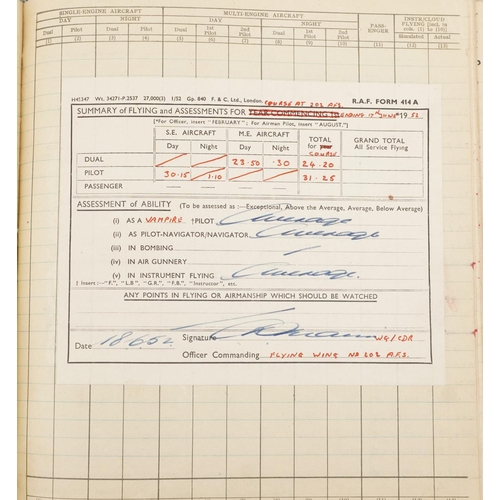 SINGLE-ENGINE AIRCRAFT MULTI-ENGINE AIRCRAFT PASS-ENGER INSTR/CLOUD FLYING [Incl. in cols. (1) to (10)]
DAY NIGHT DAY NIGHT
Dual Pilot Dual Pilot Dual 1st Pilot 2nd Pilot Dual 1st Pilot 2nd Pilot Simulated Actual
(1) (2) (3) (4) (5) (6) (7) (8) (9) (10) (11) (12) (13)
H45347 Wt. 34271-P.2537 27,000(3) 1/52 Gp. 840 F. & C. Ltd., London. COURSE AT 202 A.F.S. R.A.F. FORM 414 A
SUMMARY of FLYING and ASSESSMENTS FOR YEAR COMMENCING 1st ENDING 17th JUNE 1952
[*For Officer, insert "FEBRUARY"; For Airman Pilot, insert "AUGUST."]
S.E. AIRCRAFT M.E. AIRCRAFT TOTAL for year COURSE GRAND TOTAL All Service Flying
Day Night Day Night
DUAL 23·50 ·30 24·20
PILOT 30·15 1·10 31·25
PASSENGER — —
ASSESSMENT of ABILITY (To be assessed as :—Exceptional, Above the Average, Average, Below Average)
(i) AS A VAMPIRE †PILOT Average
(ii) AS PILOT-NAVIGATOR/NAVIGATOR Average
(iii) IN BOMBING
(iv) IN AIR GUNNERY
(v) IN INSTRUMENT FLYING Average.
† Insert :—"F.", "L.B", "G.R.", "F.B.", "Instructor", etc.
ANY POINTS IN FLYING OR AIRMANSHIP WHICH SHOULD BE WATCHED
Signature WG/CDR
Date 18.6.52.
Officer Commanding FLYING WING No 202 A.F.S.
(1) (2) (3) (4)